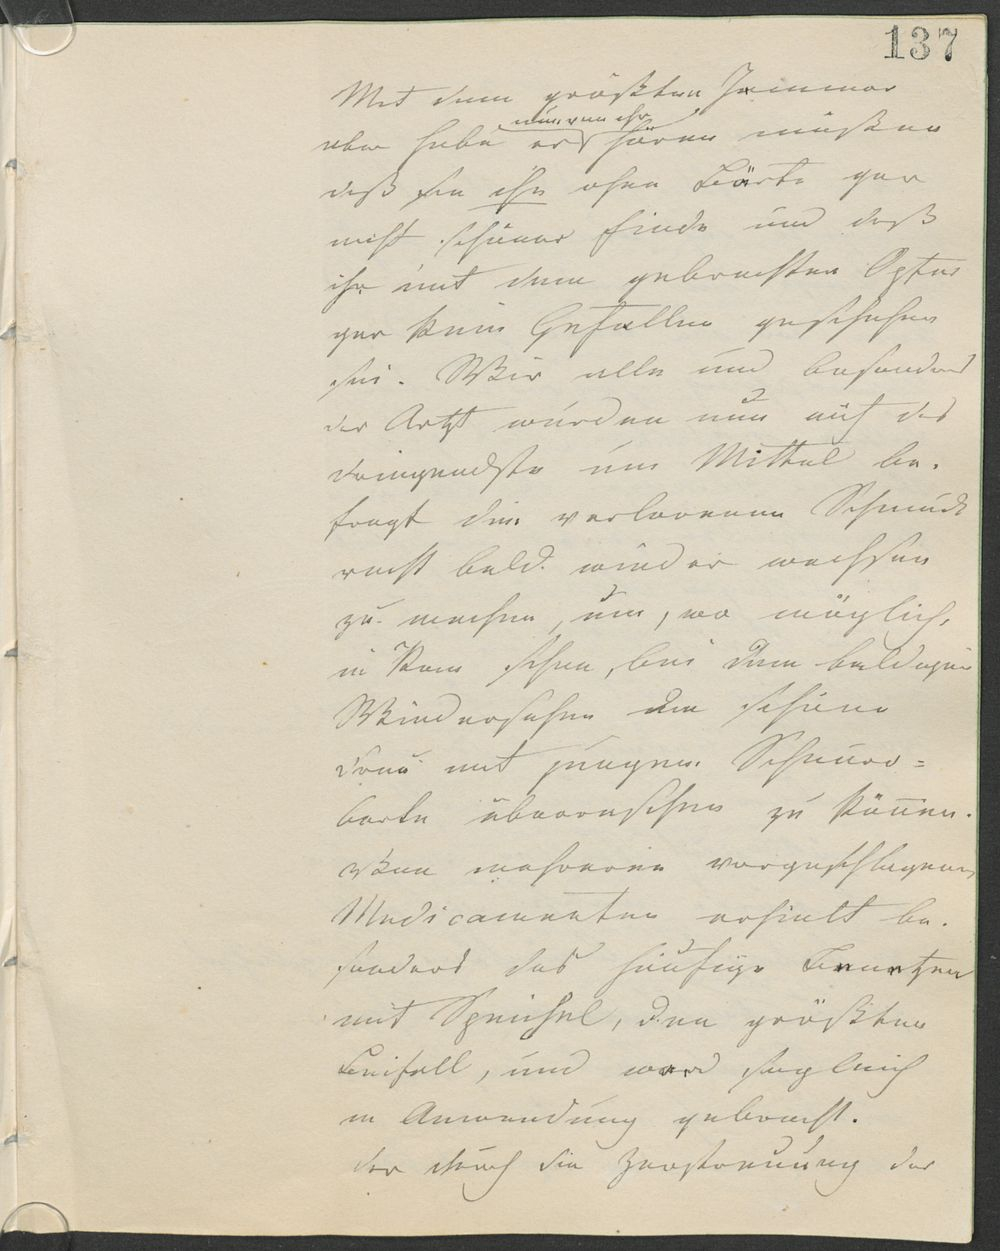 137
Mit dem größten Jammer
nun von ihr
aber habe er hören müßen
daß sie ihn ohne Bärte gar
nicht schöner finde und daß
ihr mit dem gebrachten Opfer
gar kein Gefallen geschehen
sei. Wir alle und besonders
der Artzt wurden nun auf das
dringendste um Mittel be-
fragt den verlorenen Schmuck
recht bald wieder wachsen
zu machen, um, wo möglich,
in schon, bei dem baldigen
Wiedersehen die schöne
Frau mit jungem Schnurr=
barte überraschen zu können.
Von mehreren vorgeschlagenen
Medicamenten erhielt be-
sonders das häufige Benetzen
mit Speichel, den größten
Beifall, und ward sogleich
in Anwendung gebracht.
Der durch die Zerstreuung der